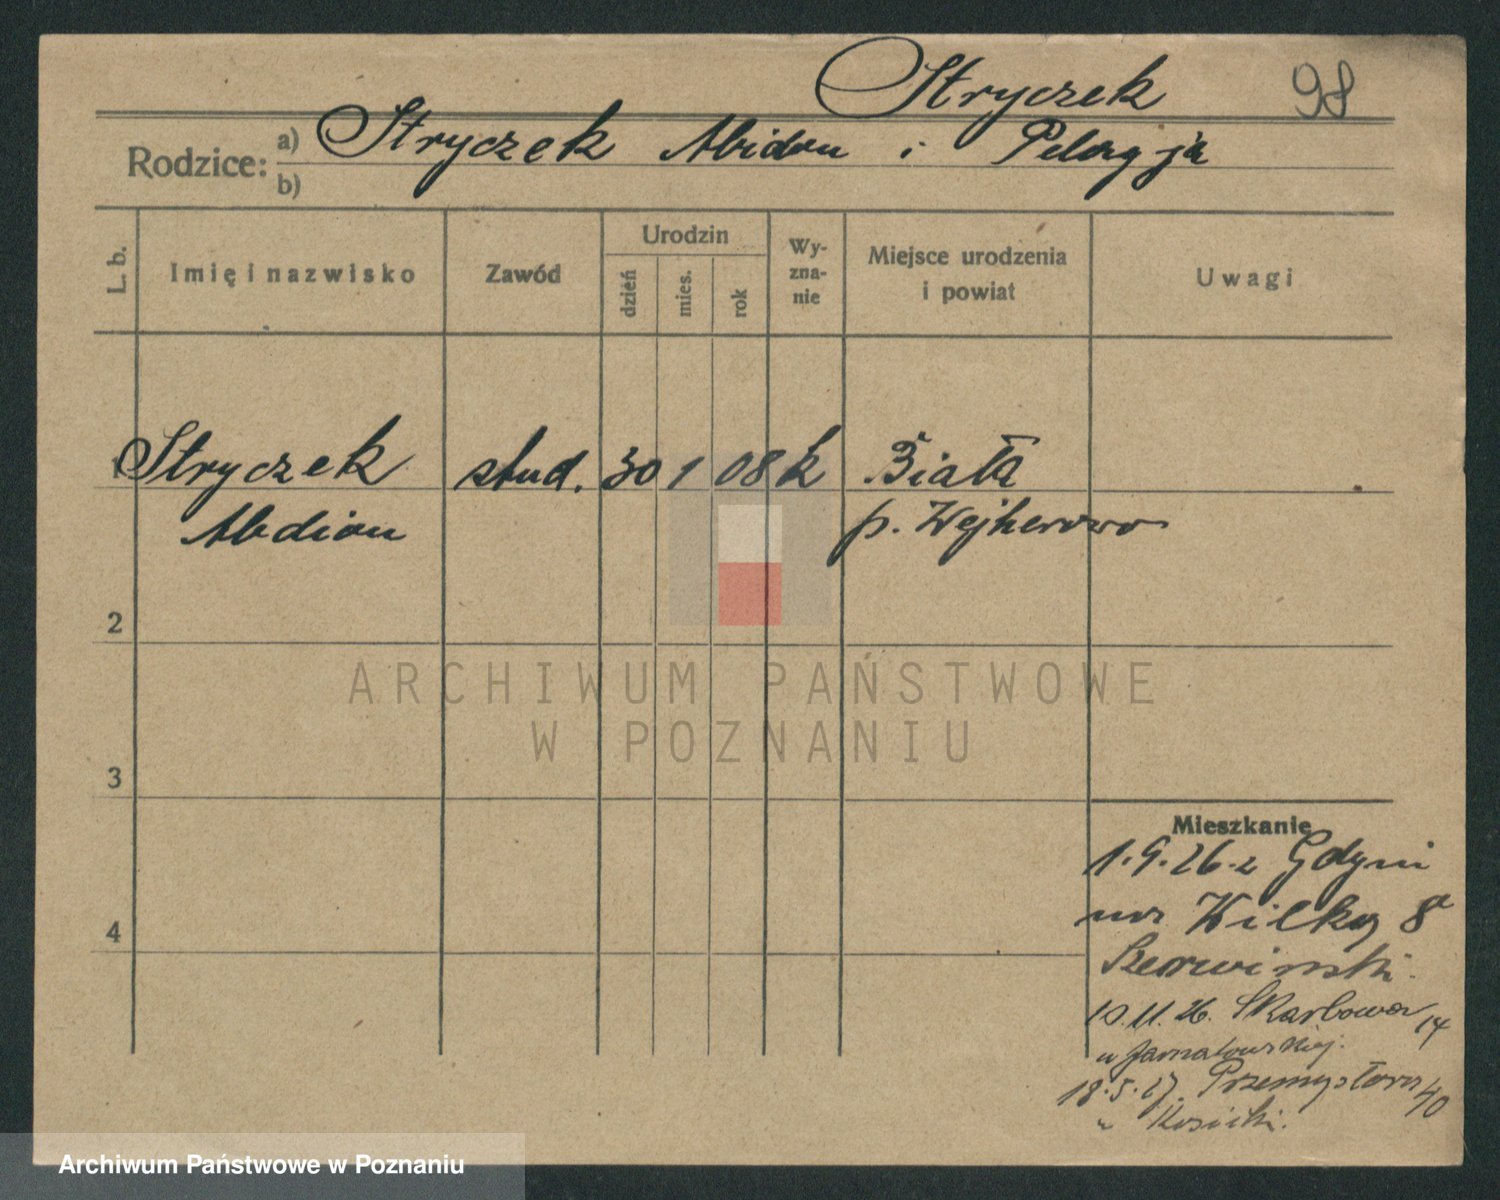 Stryczek 98
Rodzice: a) Stryczek Abidon i Pelagja
b)
L. b. Imię i nazwisko Zawód Urodzin dzień mies. rok Wyznanie Miejsce urodzenia i powiat Uwagi
1 Stryczek stud. 30 1 08 k Biała
Abdion p. Wejherowo
2
3
4
Mieszkanie
1.9.26 z Gdyni
na Wilką 8a
Szerwiński.
10.11.26. Skarbowa 14
u Jarnatowskiej.
18.5.27. Przemysłowa 40
u Kosicki.
ARCHIWUM PAŃSTWOWE
W POZNANIU
Archiwum Państwowe w Poznaniu